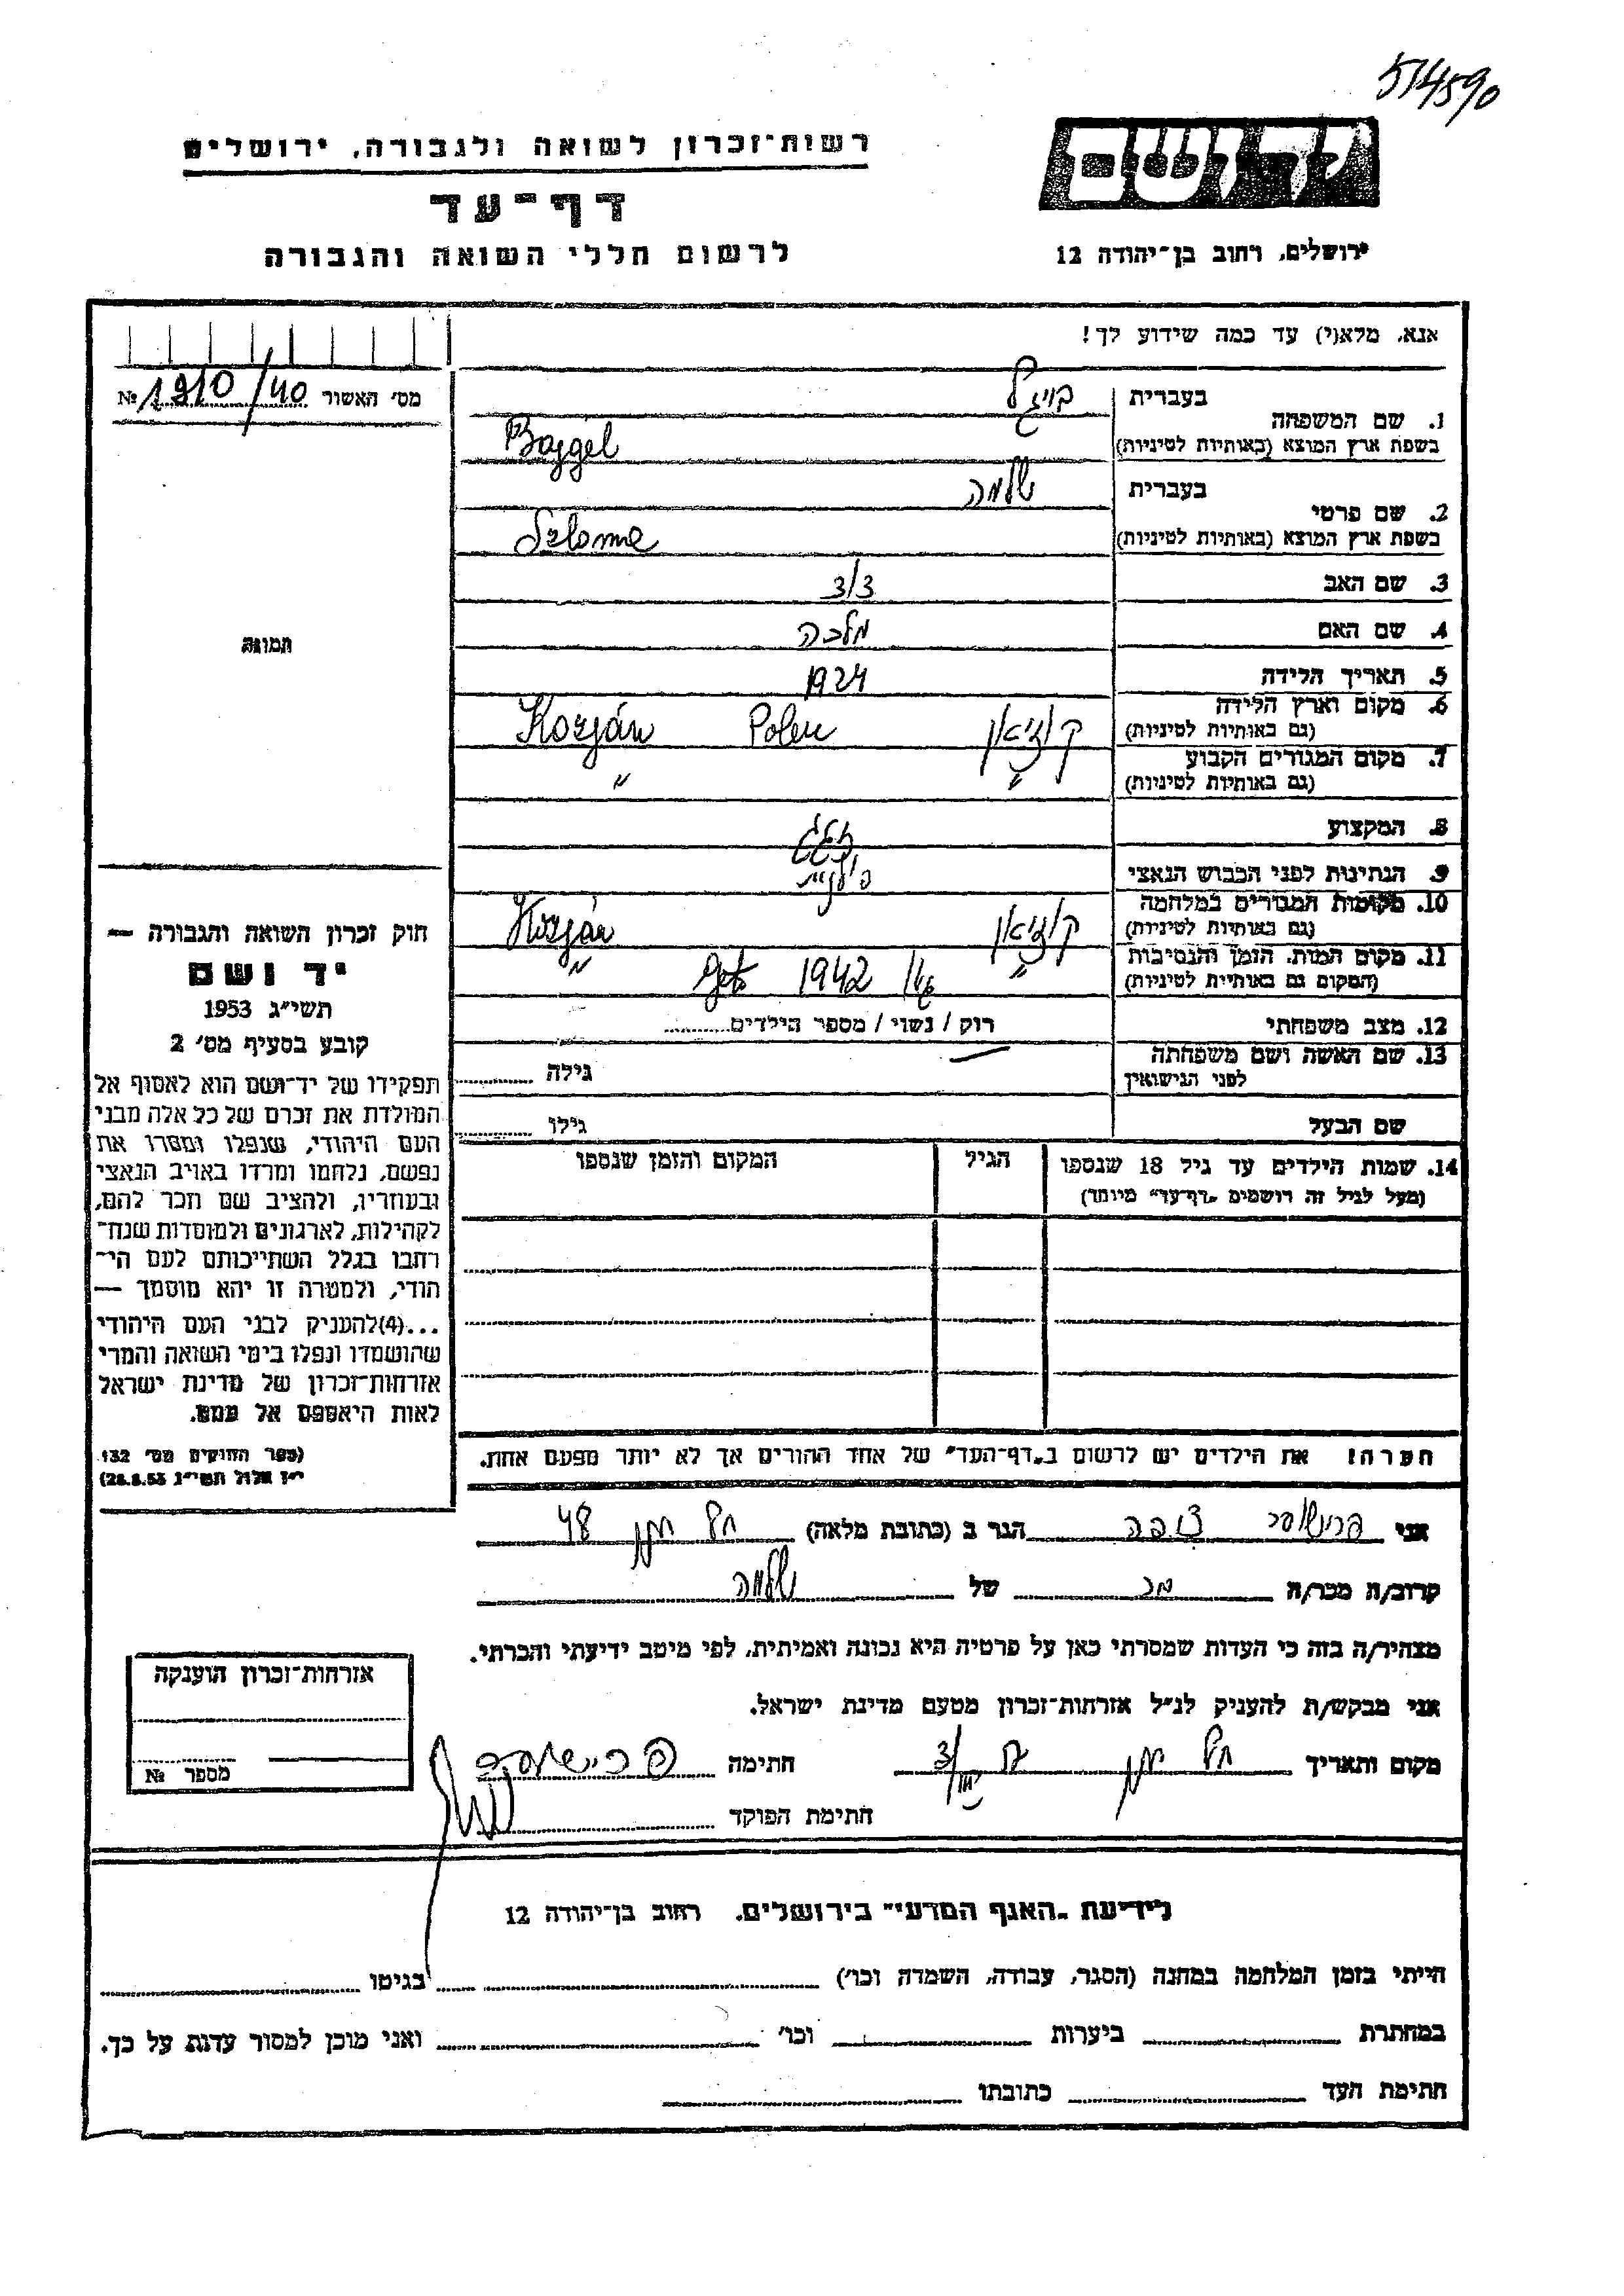 514590
יד ושם
רשות־זכרון לשואה ולגבורה, ירושלים
דף־עד
לרשום חללי השואה והגבורה
ירושלים, רחוב בן־יהודה 12
אנא, מלא(י) עד כמה שידוע לך!
מס׳ האשור 1910/40 №
1. שם המשפחה
בעברית
בשפת ארץ המוצא (באותיות לטיניות) Bajgel
2. שם פרטי
בעברית שלמה
בשפת ארץ המוצא (באותיות לטיניות) Szlome
3. שם האב
4. שם האם מלכה
5. תאריך הלידה 1924
6. מקום וארץ הלידה (גם באותיות לטיניות) קוזיאן Polen Kozján
7. מקום המגורים הקבוע (גם באותיות לטיניות) " "
8. המקצוע
9. הנתינות לפני הכבוש הנאצי פולנית
10. מקומות המגורים במלחמה (גם באותיות לטיניות) קוזיאן Kozján
11. מקום המות, הזמן והנסיבות (המקום גם באותיות לטיניות) " 1942 Geto "
12. מצב משפחתי רוק / נשוי / מספר הילדים
13. שם האשה ושם משפחתה לפני הנישואין גילה
שם הבעל גילו
14. שמות הילדים עד גיל 18 שנספו הגיל המקום והזמן שנספו
(מעל לגיל זה רושמים „דף־עד” מיוחד)
הערה! את הילדים יש לרשום ב„דף־העד” של אחד ההורים אך לא יותר מפעם אחת.
תמונה
חוק זכרון השואה והגבורה —
יד ושם
תשי״ג 1953
קובע בסעיף מס׳ 2
תפקידו של יד־ושם הוא לאסוף אל
המולדת את זכרם של כל אלה מבני
העם היהודי, שנפלו ומסרו את
נפשם, נלחמו ומרדו באויב הנאצי
ובעוזריו, ולהציב שם וזכר להם,
לקהילות, לארגונים ולמוסדות שנח־
רבו בגלל השתייכותם לעם הי־
הודי, ולמטרה זו יהא מוסמך —
...(4)להעניק לבני העם היהודי
שהושמדו ונפלו בימי השואה והמרי
אזרחות־זכרון של מדינת ישראל
לאות היאספם אל עמם.
(ספר החוקים מס׳ 132
י״ז אלול תשי״ג 28.8.53)
אני הגר ב (כתובת מלאה) 48
קרוב/ה מכר/ה מכר של שלמה
מצהיר/ה בזה כי העדות שמסרתי כאן על פרטיה היא נכונה ואמיתית, לפי מיטב ידיעתי והכרתי.
אני מבקש/ת להעניק לנ״ל אזרחות־זכרון מטעם מדינת ישראל.
מקום ותאריך חתימה
חתימת הפוקד
אזרחות־זכרון הוענקה
מספר №
לידיעת „האגף המדעי” בירושלים, רחוב בן־יהודה 12
הייתי בזמן המלחמה במחנה (הסגר, עבודה, השמדה וכו׳) בגיטו
במחתרת ביערות וכו׳ ואני מוכן למסור עדות על כך.
חתימת העד כתובתו